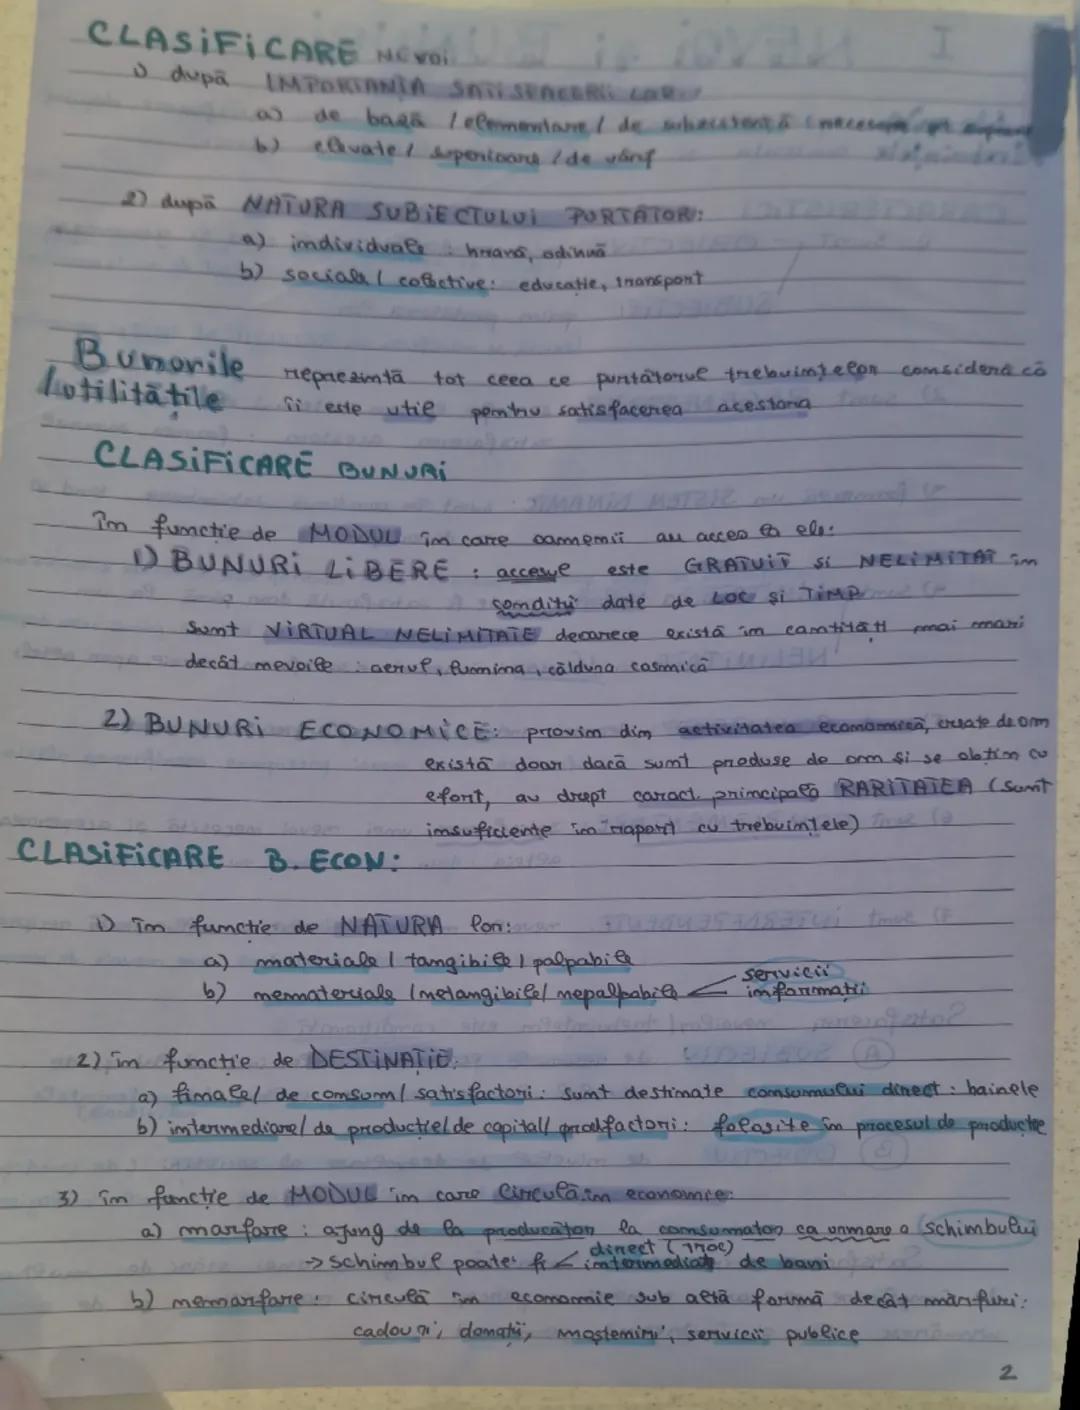 CLASIFICARE nevoi
1) după IMPORTANȚA SATISFACERII LOR:
a) de bază / elementare / de subzistență (necesare pt
b) elevate / superioare / de vârf
2) după NATURA SUBIECTULUI PURTĂTOR:
a) individuale : hrană, odihnă
b) sociale / colective: educație, transport
Bunurile reprezintă tot ceea ce purtătorul trebuințelor consideră că
/utilitățile îi este util pentru satisfacerea acestora
CLASIFICARE BUNURI
în funcție de MODUL în care oamenii au acces la ele:
1) BUNURI LIBERE : accesul este GRATUIT și NELIMITAT în
condiții date de LOC și TIMP
Sunt VIRTUAL NELIMITATE deoarece există în cantități mai mari
decât nevoile : aerul, lumina, căldura cosmică
2) BUNURI ECONOMICE: provin din activitatea economică, create de om
există doar dacă sunt produse de om și se obțin cu
efort, au drept caract. principală RARITATEA (sunt
insuficiente în raport cu trebuințele)
CLASIFICARE B. ECON:
1) în funcție de NATURA lor:
a) materiale / tangibile / palpabile
b) nemateriale / netangibile / nepalpabile < servicii
informații
2) în funcție de DESTINAȚIE:
a) finale / de consum / satisfactori : sunt destinate consumului direct : hainele
b) intermediare / de producție / de capital / prodfactori : folosite în procesul de producție
3) în funcție de MODUL în care circulă în economie:
a) marfare : ajung de la producător la consumator ca urmare a schimbului
→ schimbul poate fi < direct (troc)
intermediat de bani
b) nemarfare : circulă în economie sub altă formă decât mărfuri:
cadouri, donații, moșteniri, servicii publice
2